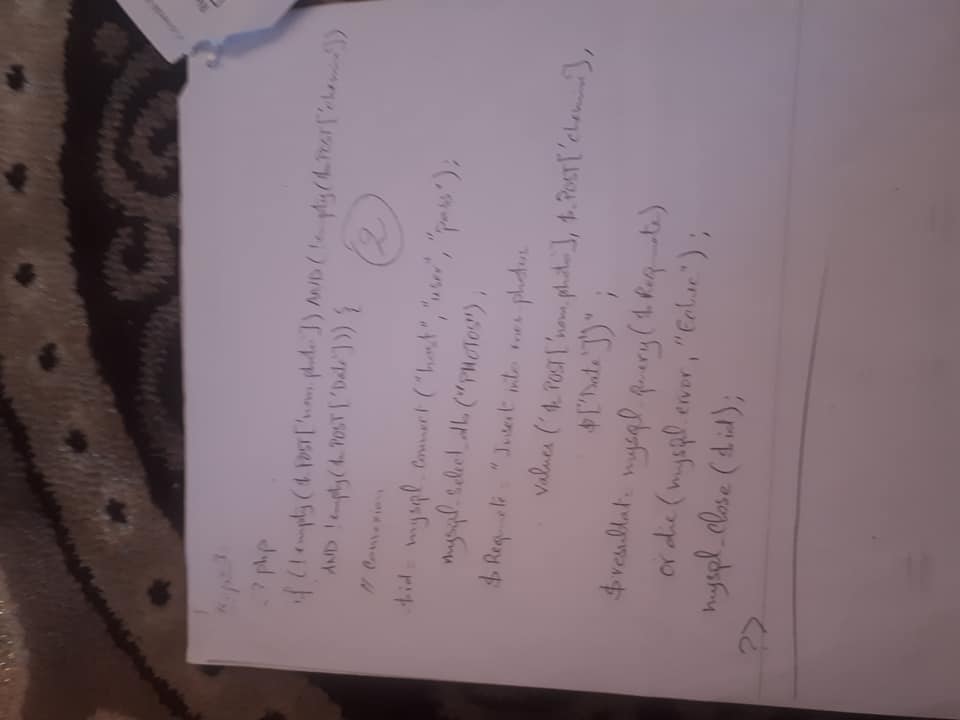 ? php
if (!empty($_POST['nom_photo']) AND (!empty($_POST['chemin'])
AND !empty($_POST['Date'])) {
②
// Connexion
$id = mysql_connect ("host", "user", "pass");
mysql_select_db ("PHOTOS");
$Requete = "Insert into mes_photos
values ('$_POST['nom_photo'], $_POST['chemin'],
$['Date'])" ;
$resultat = mysql_query ($Requete)
or die (mysql_error, "Echec") ;
mysql_close ($id);
?>